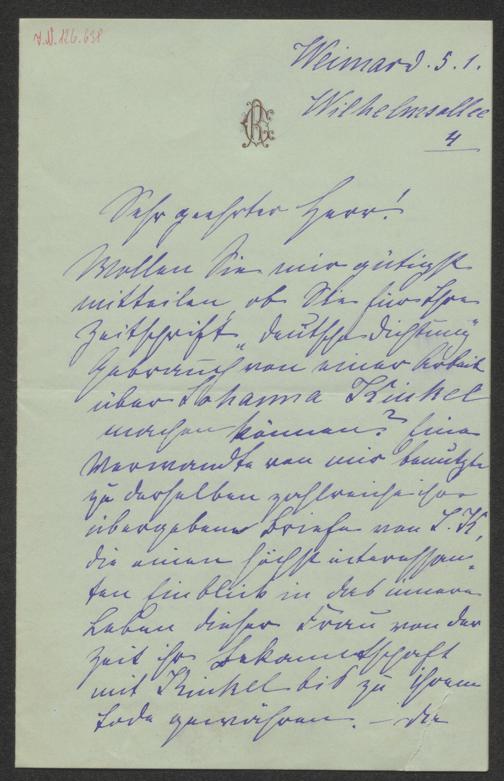 J.N. 126.638
Weimar d. 5. 1.
Wilhelmsallee
4
Sehr geehrter Herr!
Wollen Sie mir gütigst
mitteilen, ob Sie für Ihre
Zeitschrift „deutsche Dichtung"
Gebrauch von einer Arbeit
über Johanna Kinkel
machen können? Eine
Verwandte von mir benutzte
zu derselben zahlreiche ihr
übergebene Briefe von J. K.
die einen höchst interessan-
ten Einblick in das innere
Leben dieser Frau von der
Zeit ihr Bekanntschaft
mit Kinkel bis zu ihrem
Tode gewähren. – Die